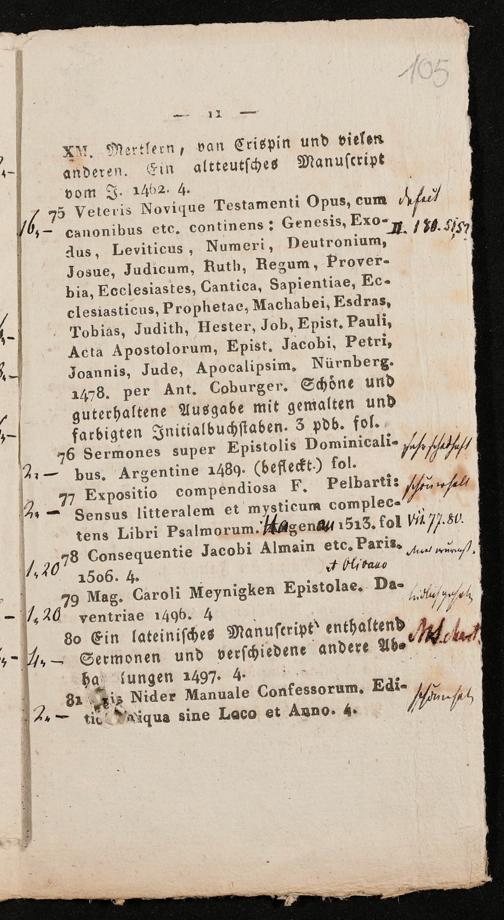 105
— 11 —
XM. Mertlern, van Crispin und vielen
anderen. Ein altteutsches Manuscript
vom J. 1462. 4.
16,— 75 Veteris Novique Testamenti Opus, cum defect
canonibus etc. continens: Genesis, Exo- II. 180.
dus, Leviticus, Numeri, Deutronium,
Josue, Judicum, Ruth, Regum, Prover-
bia, Ecclesiastes, Cantica, Sapientiae, Ec-
clesiasticus, Prophetae, Machabei, Esdras,
Tobias, Judith, Hester, Job, Epist. Pauli,
Acta Apostolorum, Epist. Jacobi, Petri,
Joannis, Jude, Apocalipsim. Nürnberg.
1478. per Ant. Coburger. Schöne und
guterhaltene Ausgabe mit gemalten und
farbigten Initialbuchstaben. 3 pdb. fol.
76 Sermones super Epistolis Dominicali-
2,— bus. Argentine 1489. (befleckt.) fol.
77 Expositio compendiosa F. Pelbarti:
2,— Sensus litteralem et mysticum complec-
tens Libri Psalmorum. Hagenau 1513. fol VII. 77. 80.
78 Consequentie Jacobi Almain etc. Paris.
1,20 1506. 4. et Olivano
79 Mag. Caroli Meynigken Epistolae. Da-
1,20 ventriae 1496. 4
80 Ein lateinisches Manuscript enthaltend
4,— Sermonen und verschiedene andere Ab-
ha lungen 1497. 4.
81 is Nider Manuale Confessorum. Edi-
2,— tio iqua sine Loco et Anno. 4.